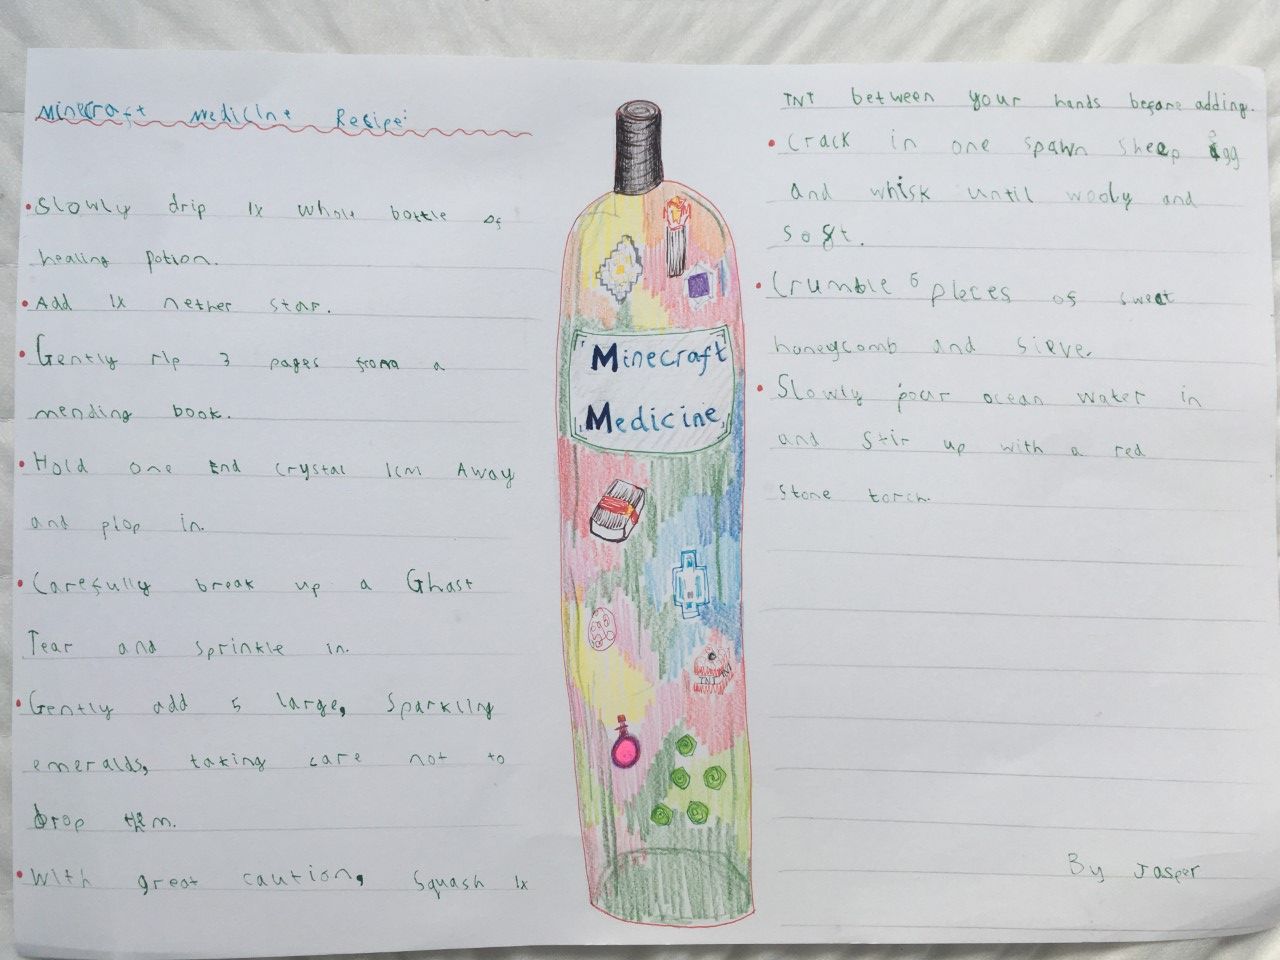 Minecraft Medicine Recipe:
• Slowly drip 1x whole bottle of
healing potion.
• Add 1x nether star.
• Gently rip 3 pages from a
mending book.
• Hold one End crystal 1cm Away
and plop in.
• Carefully break up a Ghast
Tear and sprinkle in.
• Gently add 5 large, sparkling
emeralds, taking care not to
drop them.
• With great caution, squash 1x
TNT between your hands before adding.
• Crack in one spawn sheep egg
and whisk until wooly and
soft.
• Crumble 6 pieces of sweet
honeycomb and sieve.
• Slowly pour ocean water in
and stir up with a red
stone torch.
By Jasper
Minecraft
Medicine
TNT